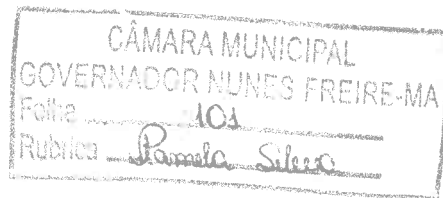 CÂMARA MUNICIPAL
GOVERNADOR NUNES FREIRE-MA
Folha 101
Rubrica Pamela Silva